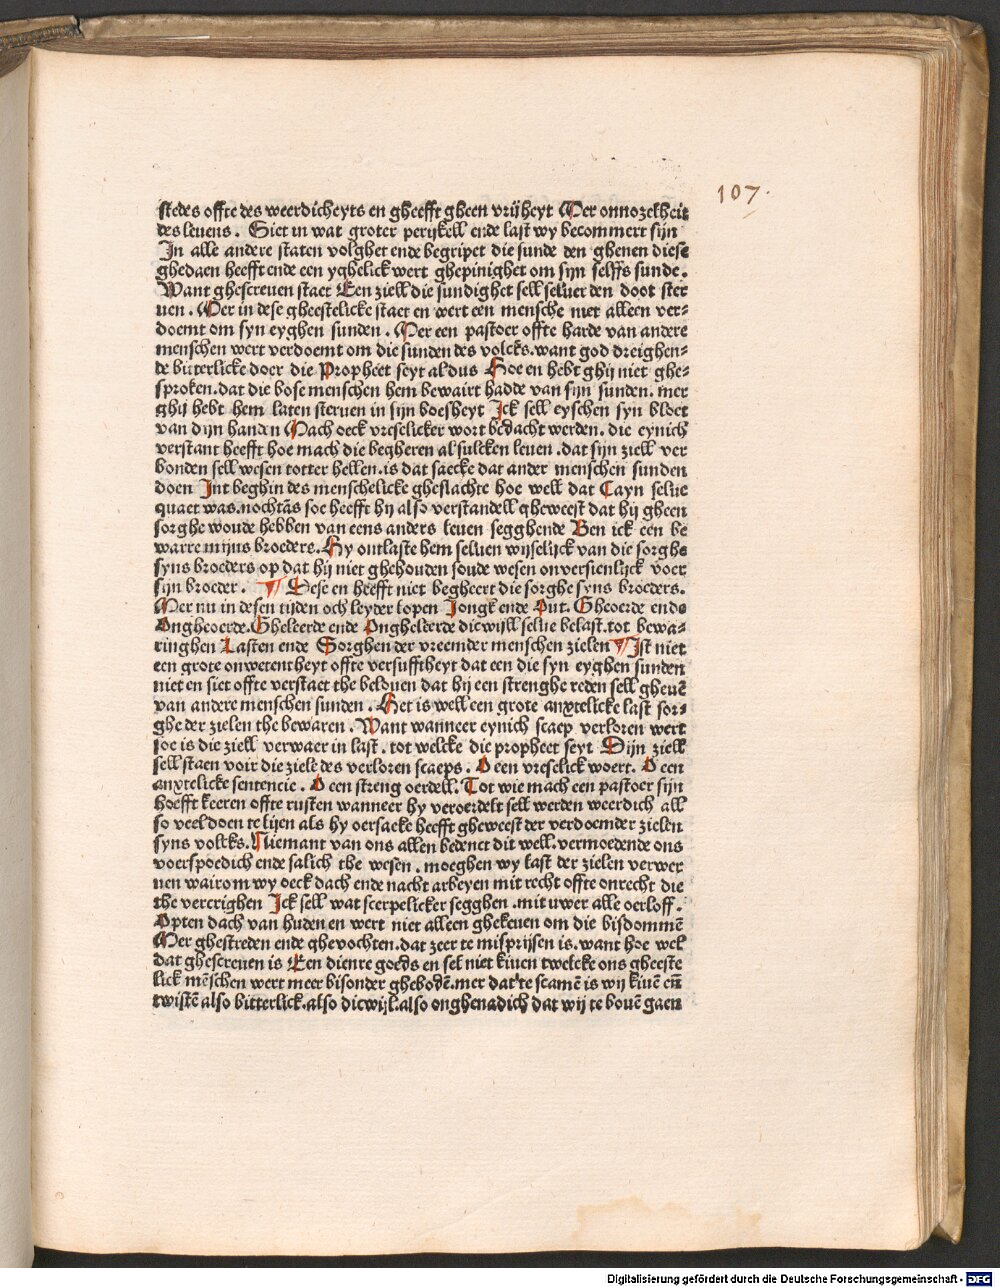 107.
stedes offte des weerdicheyts en gheefft gheen vrijheyt Mer onnozelheit
des leuens. Siet in wat groter perijkell ende last wy becommert sijn
In alle andere staten volghet ende begripet die sunde den ghenen diese
ghedaen heefft ende een yghelick wert ghepinighet om sijn selffs sunde.
Want ghescreuen staet Een ziell die sundighet sell seluer den doot ster
uen. Mer in dese gheestelicke staet en wert een mensche niet alleen ver-
doemt om syn eyghen sunden. Mer een pastoer offte harde van andere
menschen wert verdoemt om die sunden des volcks. want god dreighen-
de bitterlicke doer die Propheet seyt aldus Hoe en hebt ghij niet ghe-
sproken. dat die bose menschen hem bewairt hadde van sijn sunden. mer
ghij hebt hem laten steruen in sijn boesheyt Ick sell eyschen syn bloet
van dijn handen Mach oeck vreselicker wort bedacht werden. die eynich
verstant heefft hoe mach die begheren al sulcken leuen. dat sijn ziell ver
bonden sell wesen totter hellen. is dat saecke dat ander menschen sunden
doen Int beghin des menschelicke gheslachte hoe well dat Cayn selue
quaet was. nochtãs soe heefft hy also verstandell gheweest dat hij gheen
sorghe woude hebben van eens anders leuen segghende Ben ick een be
warre mijns broeders. Hy ontlaste hem seluen wijselijck van die sorghe
syns broeders op dat hij niet ghehouden soude wesen onversienlijck voer
sijn broeder. ¶ Dese en heefft niet begheert die sorghe syns broeders.
Mer nu in desen tijden och leyder lopen Jongk ende Out. Gheoerde ende
Ongheoerde. Gheleerde ende Ongheleerde dicwijll selue belast. tot bewa-
ringhen Lasten ende Sorghen der vreemder menschen zielen ¶ Ist niet
een grote onwetentheyt offte versufftheyt dat een die syn eyghen sunden
niet en siet offte verstaet the belouen dat hij een strenghe reden sell gheuẽ
van andere menschen sunden. Het is well een grote anxtelicke last sor-
ghe der zielen the bewaren. Want wanneer eynich scaep verloren wert
soe is die ziell verwaer in last. tot welcke die propheet seyt Dijn ziell
sell staen voir die ziele des verloren scaeps. O een vreselick woert. O een
anxtelicke sentencie. O een streng oerdell. Tot wie mach een pastoer sijn
hoefft keeren offte rusten wanneer hy veroerdelt sell werden weerdich all
so veel doen te lijen als hy oersaeke heefft gheweest der verdoemder zielen
syns volcks. Niemant van ons allen bedenct dit well. vermoedende ons
voerspoedich ende salich the wesen. moeghen wy last der zielen verwer
uen wairom wy oeck dach ende nacht arbeyen mit recht offte onrecht die
the vercrighen Ick sell wat scerpelicker segghen. mit uwer alle oerloff.
Opten dach van huden en wert niet alleen ghekeuen om die bisdommẽ
Mer ghestreden ende ghevochten. dat zeer te misprijsen is. want hoe wel
dat ghescreuen is Een dienre goeds en sel niet kiuen twelcke ons gheeste
lick mẽschen wert meer bisonder ghebodẽ. mer dat te scamẽ is wij kiuẽ eñ
twistẽ also bitterlick. also dicwijl. also onghenadich dat wij te bouẽ gaen
Digitalisierung gefördert durch die Deutsche Forschungsgemeinschaft - DFG